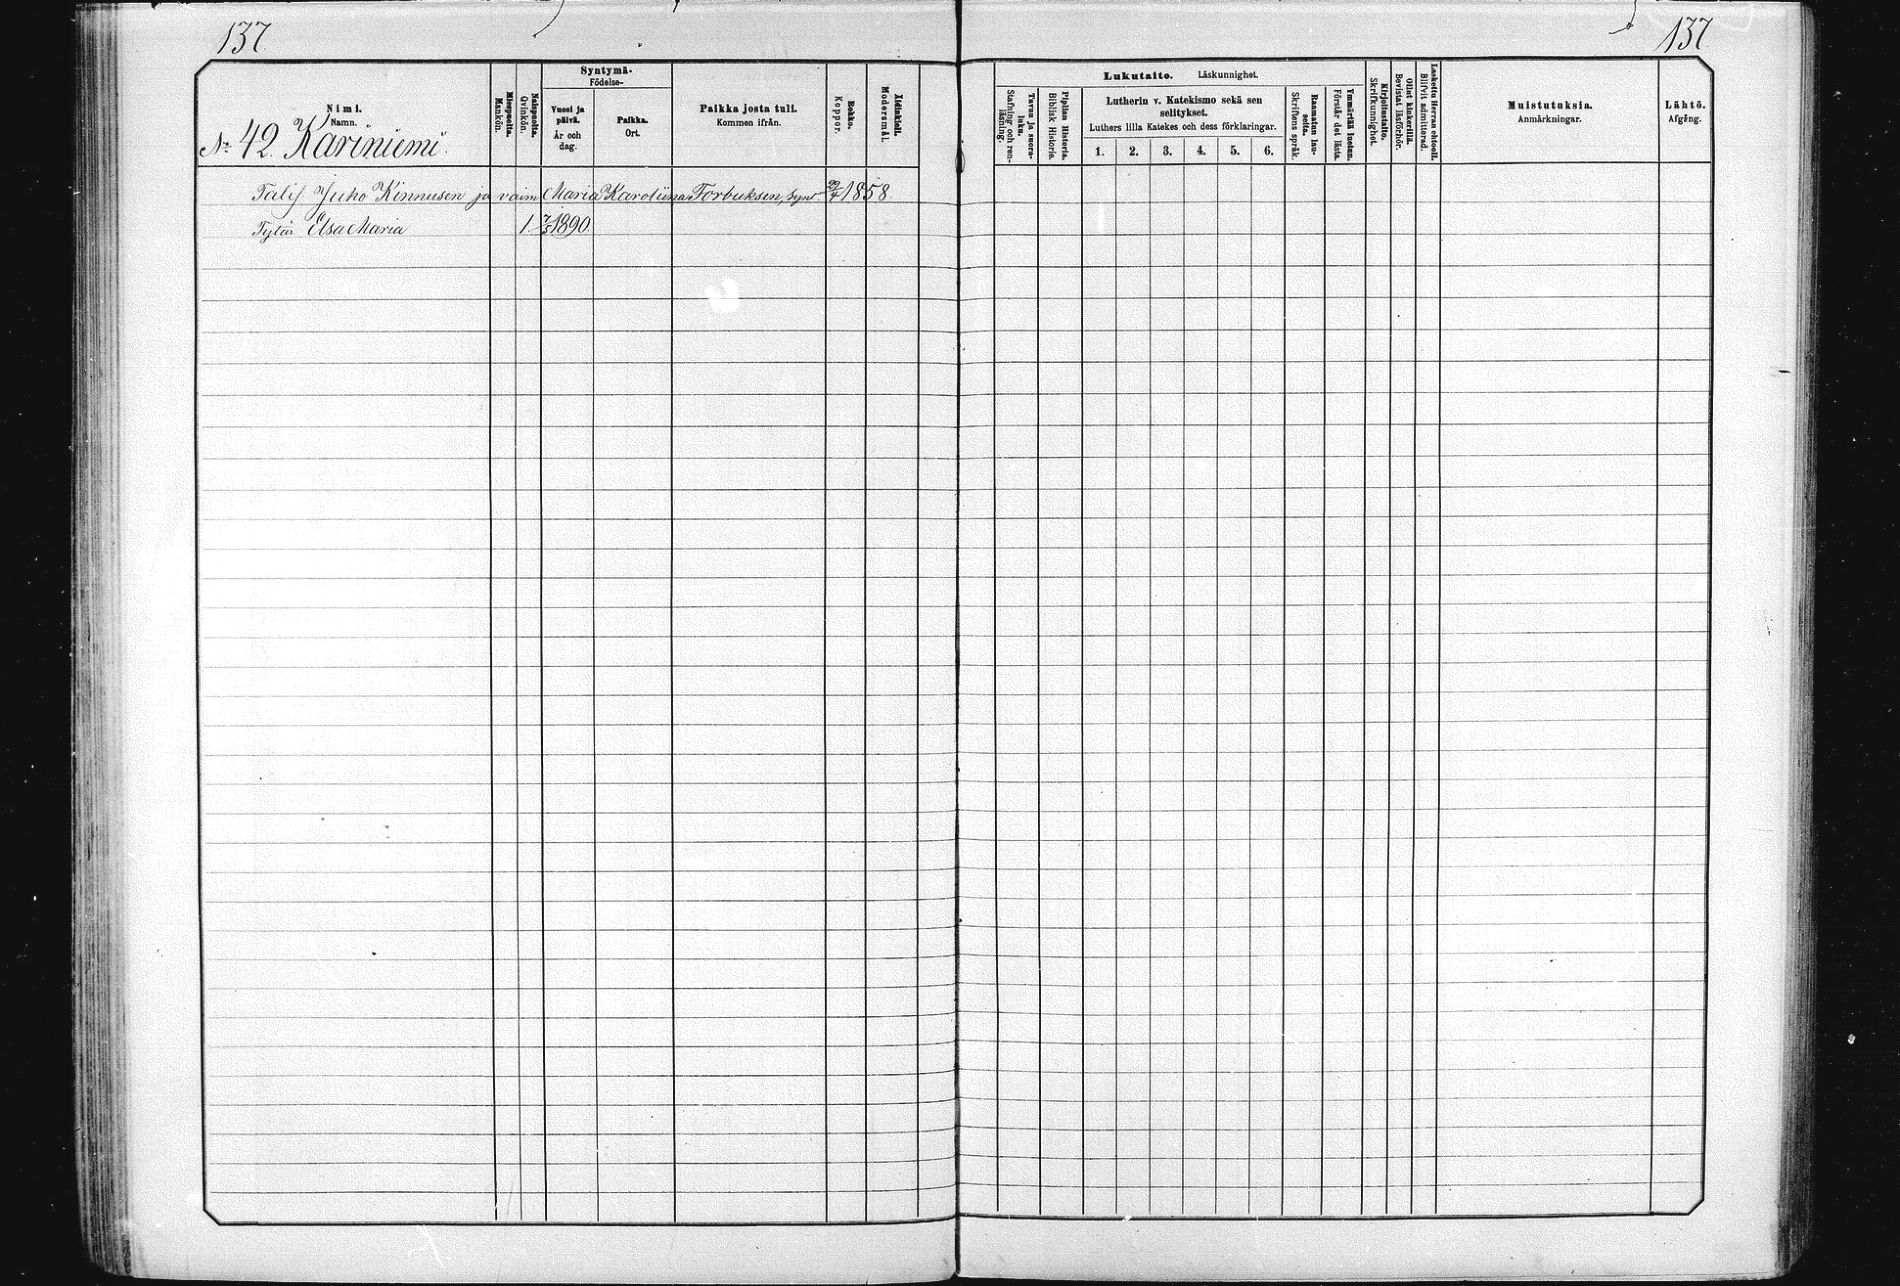 137
137
Nimi.
Namn.
No 42. Kariniemi.
Miespuolta.
Mankön.
Naispuolta.
Qvinkön.
Syntymä-
Födelse-
Vuosi ja päivä.
År och dag.
Paikka.
Ort.
Paikka josta tuli.
Kommen ifrån.
Rokko.
Koppor.
Äidinkieli.
Modersmål.
Lukutaito. Läskunnighet.
Tavau ja suora-luku.
Stafning och ren-läsning.
Piplian Historia.
Biblisk Historie.
Lutherin v. Katekismo sekä sen selitykset.
Luthers lilla Katekes och dess förklaringar.
1. 2. 3. 4. 5. 6.
Raamatun lau-seita.
Skriftens språk.
Ymmärtää luetun.
Förstår det lästa.
Kirjoitustaito.
Skrifkunnighet.
Ollut kinkerillä.
Bevistat läsförhör.
Laskettu Herran ehtoolle.
Blifvit admitterad.
Muistutuksia.
Anmärkningar.
Lähtö.
Afgång.
Talif. Juho Kinnusen ja vaim. Maria Karoliina Forbuksen, synt. 1858.
Tytär Elsa Maria 1. 7/3 1890.